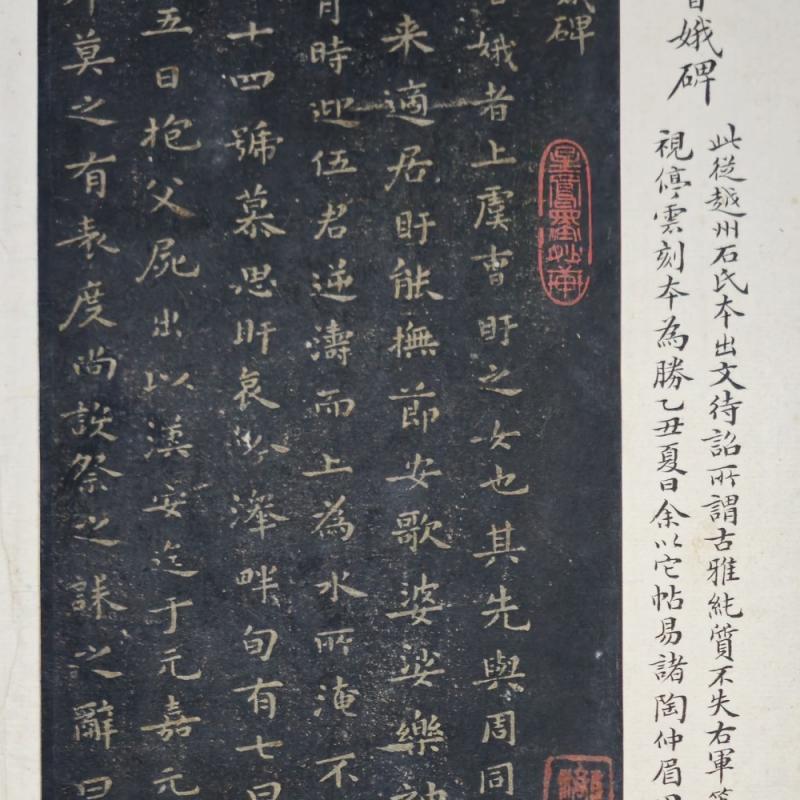 娥碑
此從越州石氏本出文待詔所謂古雅純質不失右軍
視停雲刻本為勝乙丑夏日余以它帖易諸陶仲眉
娥碑
娥者上虞曹盱之女也其先與周同
来適居盱能撫節安歌婆娑樂神
時迎伍君逆濤而上為水所淹不
十四號慕思盱哀吟澤畔旬有七日
五日抱父屍出以漢安迄于元嘉元
莫之有表度尚設祭之誄之辭曰